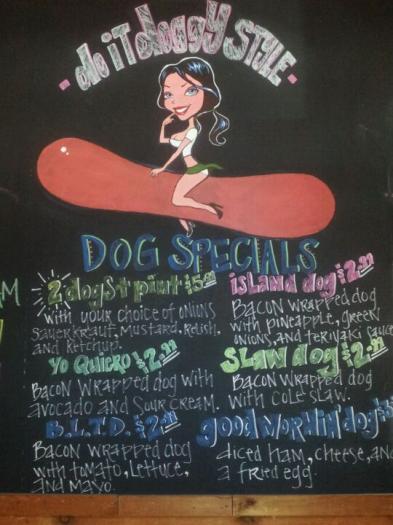 - do iT doggy STYLE -
DOG SPECIALS
2 dogs + pint $5.00
with your choice of onions
Sauerkraut, mustard, Relish,
and ketchup.
Yo Quiero $2.22
BACON WRAPPed dog with
avocado and Sour CREAM.
B.L.T.D. $2.22
BACON WRAPPed dog
with tomato, Lettuce,
and mayo.
island dog $2.22
BACON WRAPPed dog
with pineapple, green
onions, and teriyaki sauce
SLAW dog $2.22
BACON WRAPPed dog
with cole slaw.
good mornin' dog
diced ham, cheese, and
a fried egg.